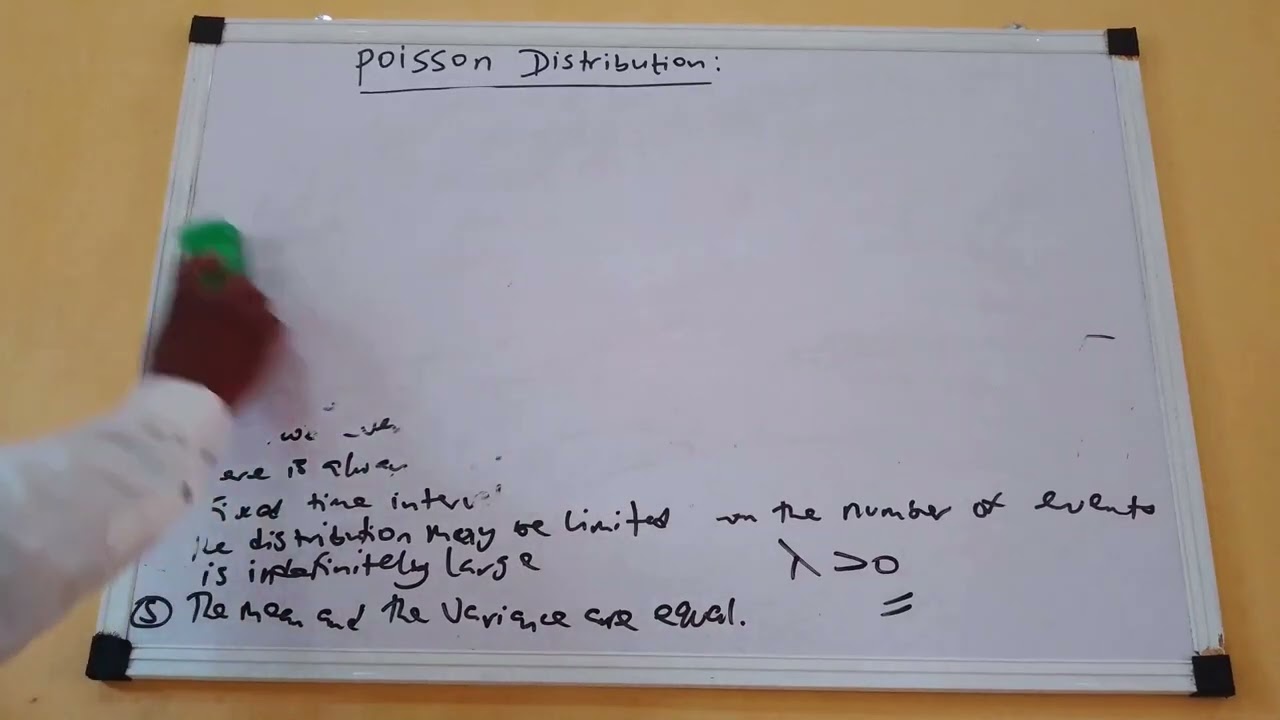 poisson Distribution:
ere is
time interv
distribution may be limited on the number of events
is indefinitely large
λ >0
⑤ The mean and the variance are equal.
=